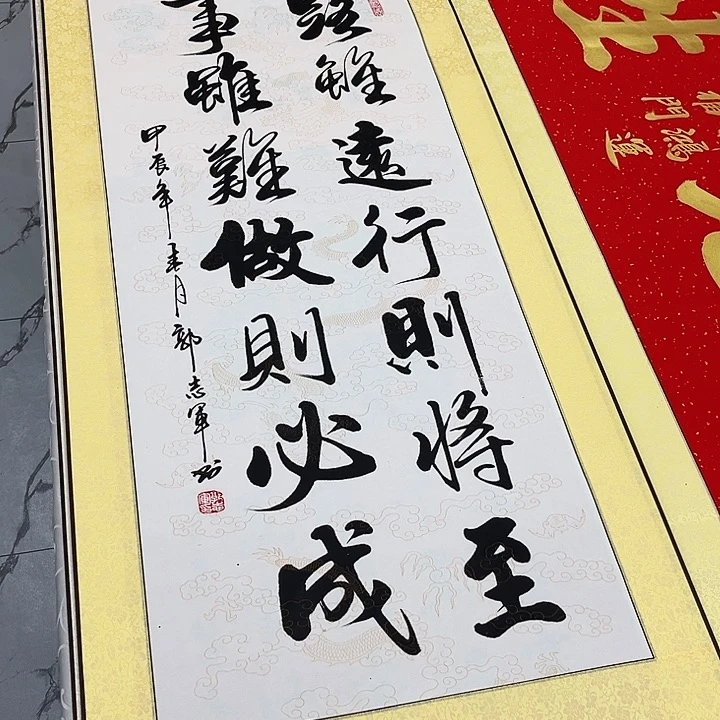 路雖遠行則將至
事雖難做則必成
甲辰年春月郭志軍书
鴻運
門